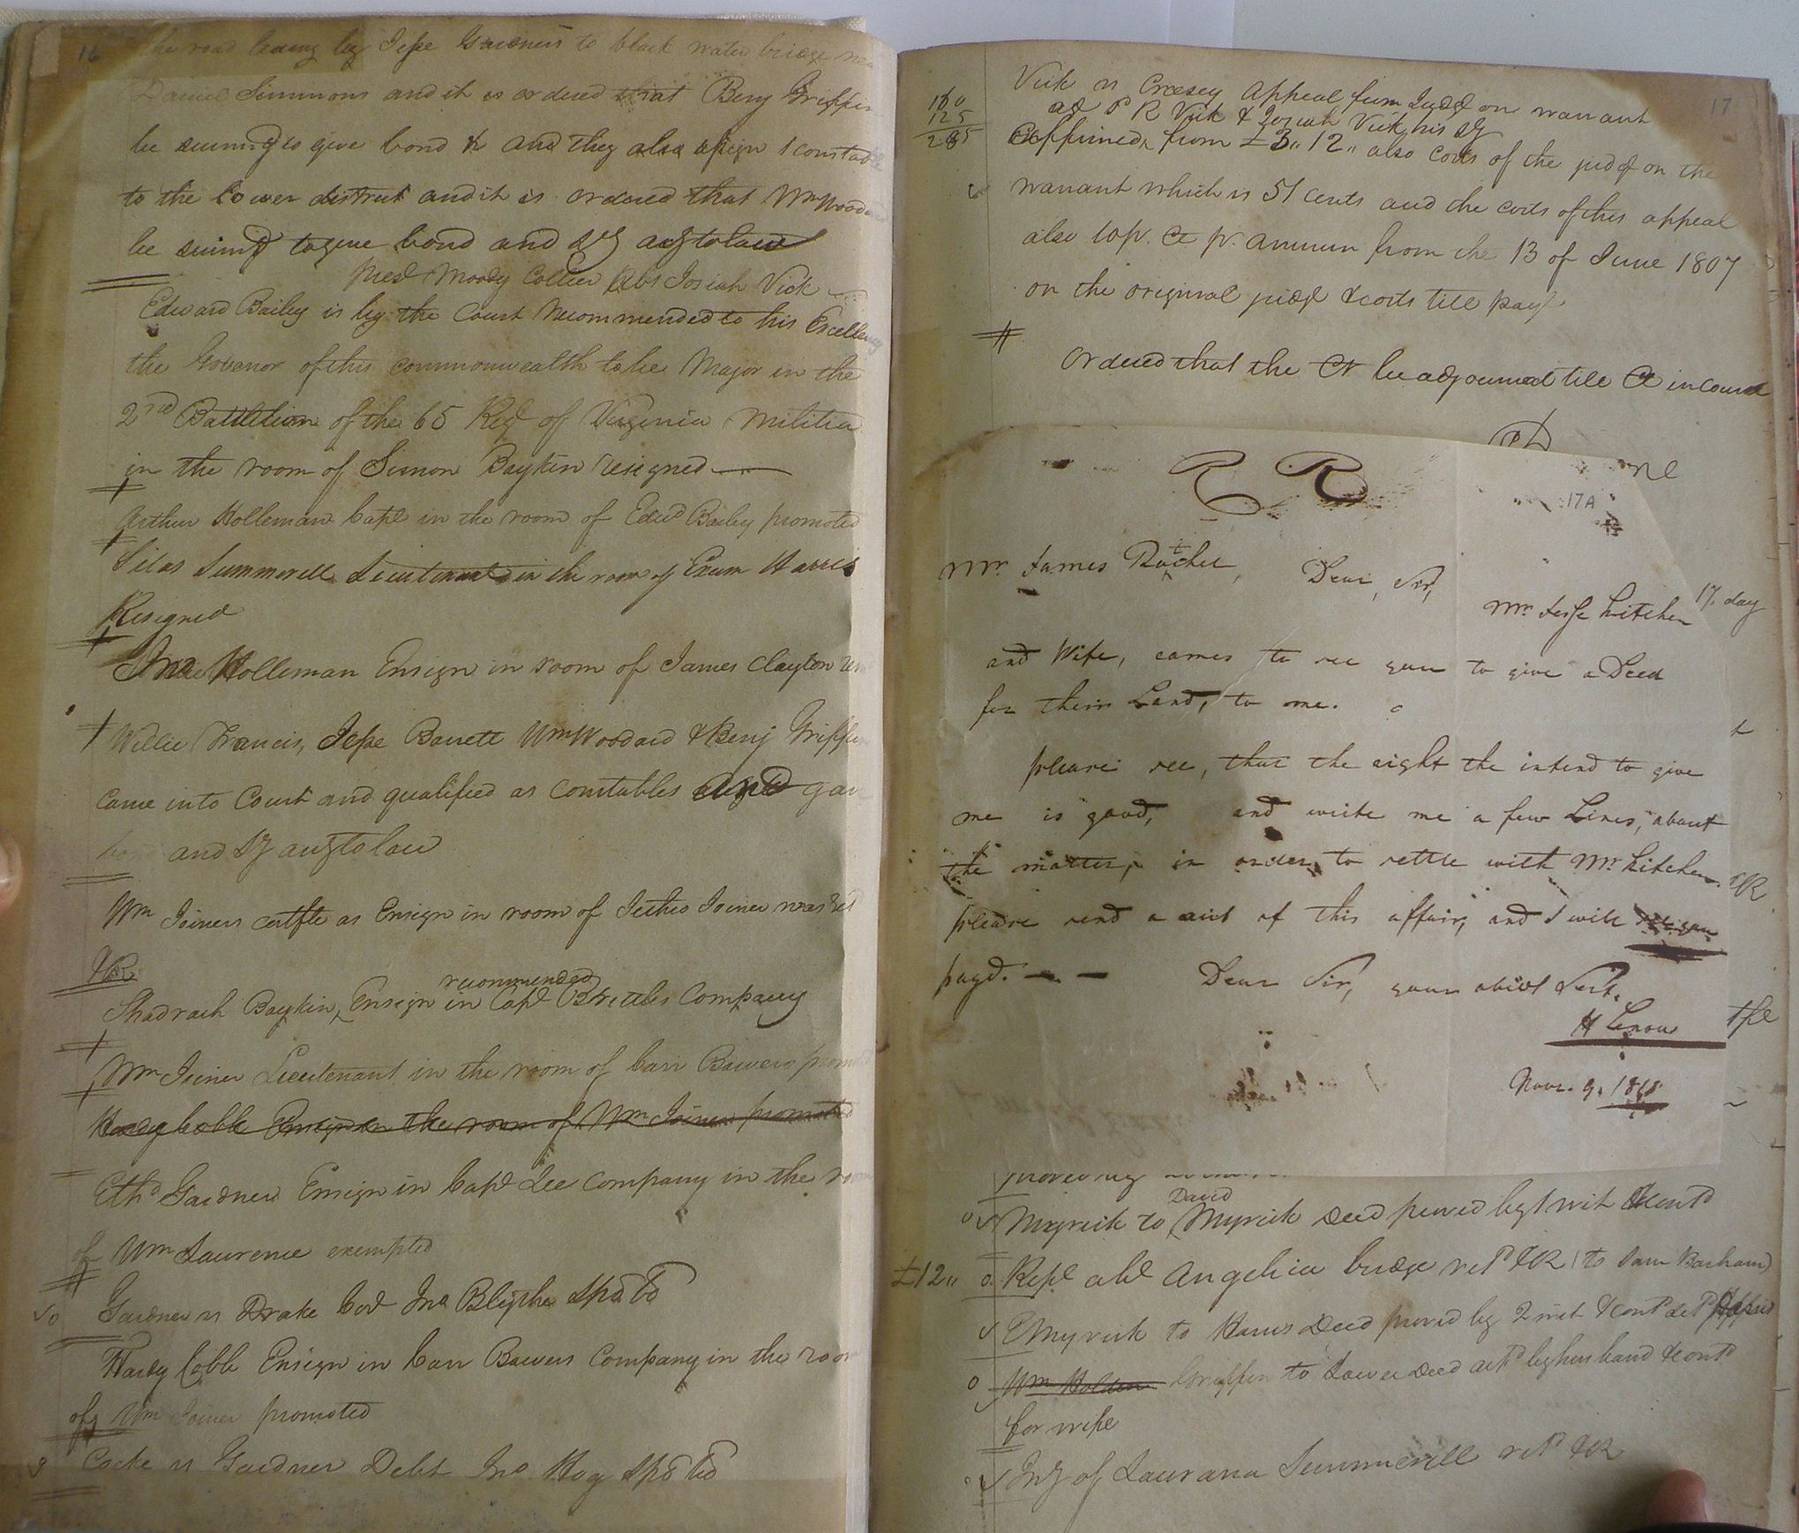 16
the road leading by Jesse Gardners to black water bridge
Daniel Simmons and it is ordered that Benj Griffin
be summd to give bond & and they also assign 1 constable
to the lower district and it is ordered that Wm Wood
be summd to give bond and Sy acg to law
Presd Moody Collier Abs Josiah Vick
Edward Bailey is by the Court Recommended to his Excellency
the Govenor of this commonwealth to be Major in the
2nd Battelion of the 65 Regt of Virginia Militia
in the room of Simon Boykin resigned
Arthur Holleman Capt in the room of Edwd Bailey promoted
Silas Summerell Lieutenant in the room of Exum Harris
Resigned
Jno Holleman Ensign in room of James Clayton
Willie Francis, Jesse Barrett Wm Woodard & Benj Griffin
came into Court and qualified as constables and gav
bond and Sy acg to law
Wm Joiners certfte as Ensign in room of Jethro Joiner was retd
&R
recommended
Shadrach Boykin, Ensign in Capt Brittles Company
Wm Joiner Lieutenant in the room of Carr Bowers prom
Hardy Cobb Ensign in the room of Wm Joiner promoted
Ethd Gardner Ensign in Capt Lee Company in the room
of Wm Laurence exempted
Gardner vs Drake Cod Jno Blythe Spa bd
Hardy Cobb Ensign in Carr Bowers Company in the room
of Wm Joiner promoted
Cocke vs Gardner Debt Jno Hog Spa bd
17
160
125
285
Vick vs Creesey Appeal from Judgt on warrant
agt P R Vick & Josiah Vick his Sy
affirmed from £3,, 12,, also costs of the judgt on the
warrant which is 51 cents and the costs of this appeal
also 10 pr. Ct pr. annum from the 13 of June 1807
on the original judgt & costs till payd
Ordered that the Ct be adjourned till Ct in Course
17A
Mr. James Rochel, Dear Sir,
Mr. Jesse Kitchen
17. day
and Wife, comes to see you to give a Deed
for their Land, to me.
please see, that the right the intend to give
me is good, and write me a few Lines, about
the matter, in order to settle with Mr. Kitchen.
please send a acct of this affair, and I will
payd. Dear Sir, your obiet Sert.
H Lenow
Novr. 9. 1818
David
Myrick to Myrick Deed proved by 1 wit & contd
£12,, Rept abt Angelica bridge retd &R to Sam Barham
E Myrick to Harris Deed proved by 2 wit & contd
Wm Holden Griffin to Lawer Deed actd by husband & contd
for wife
Iny of Laurana Summerell retd &R